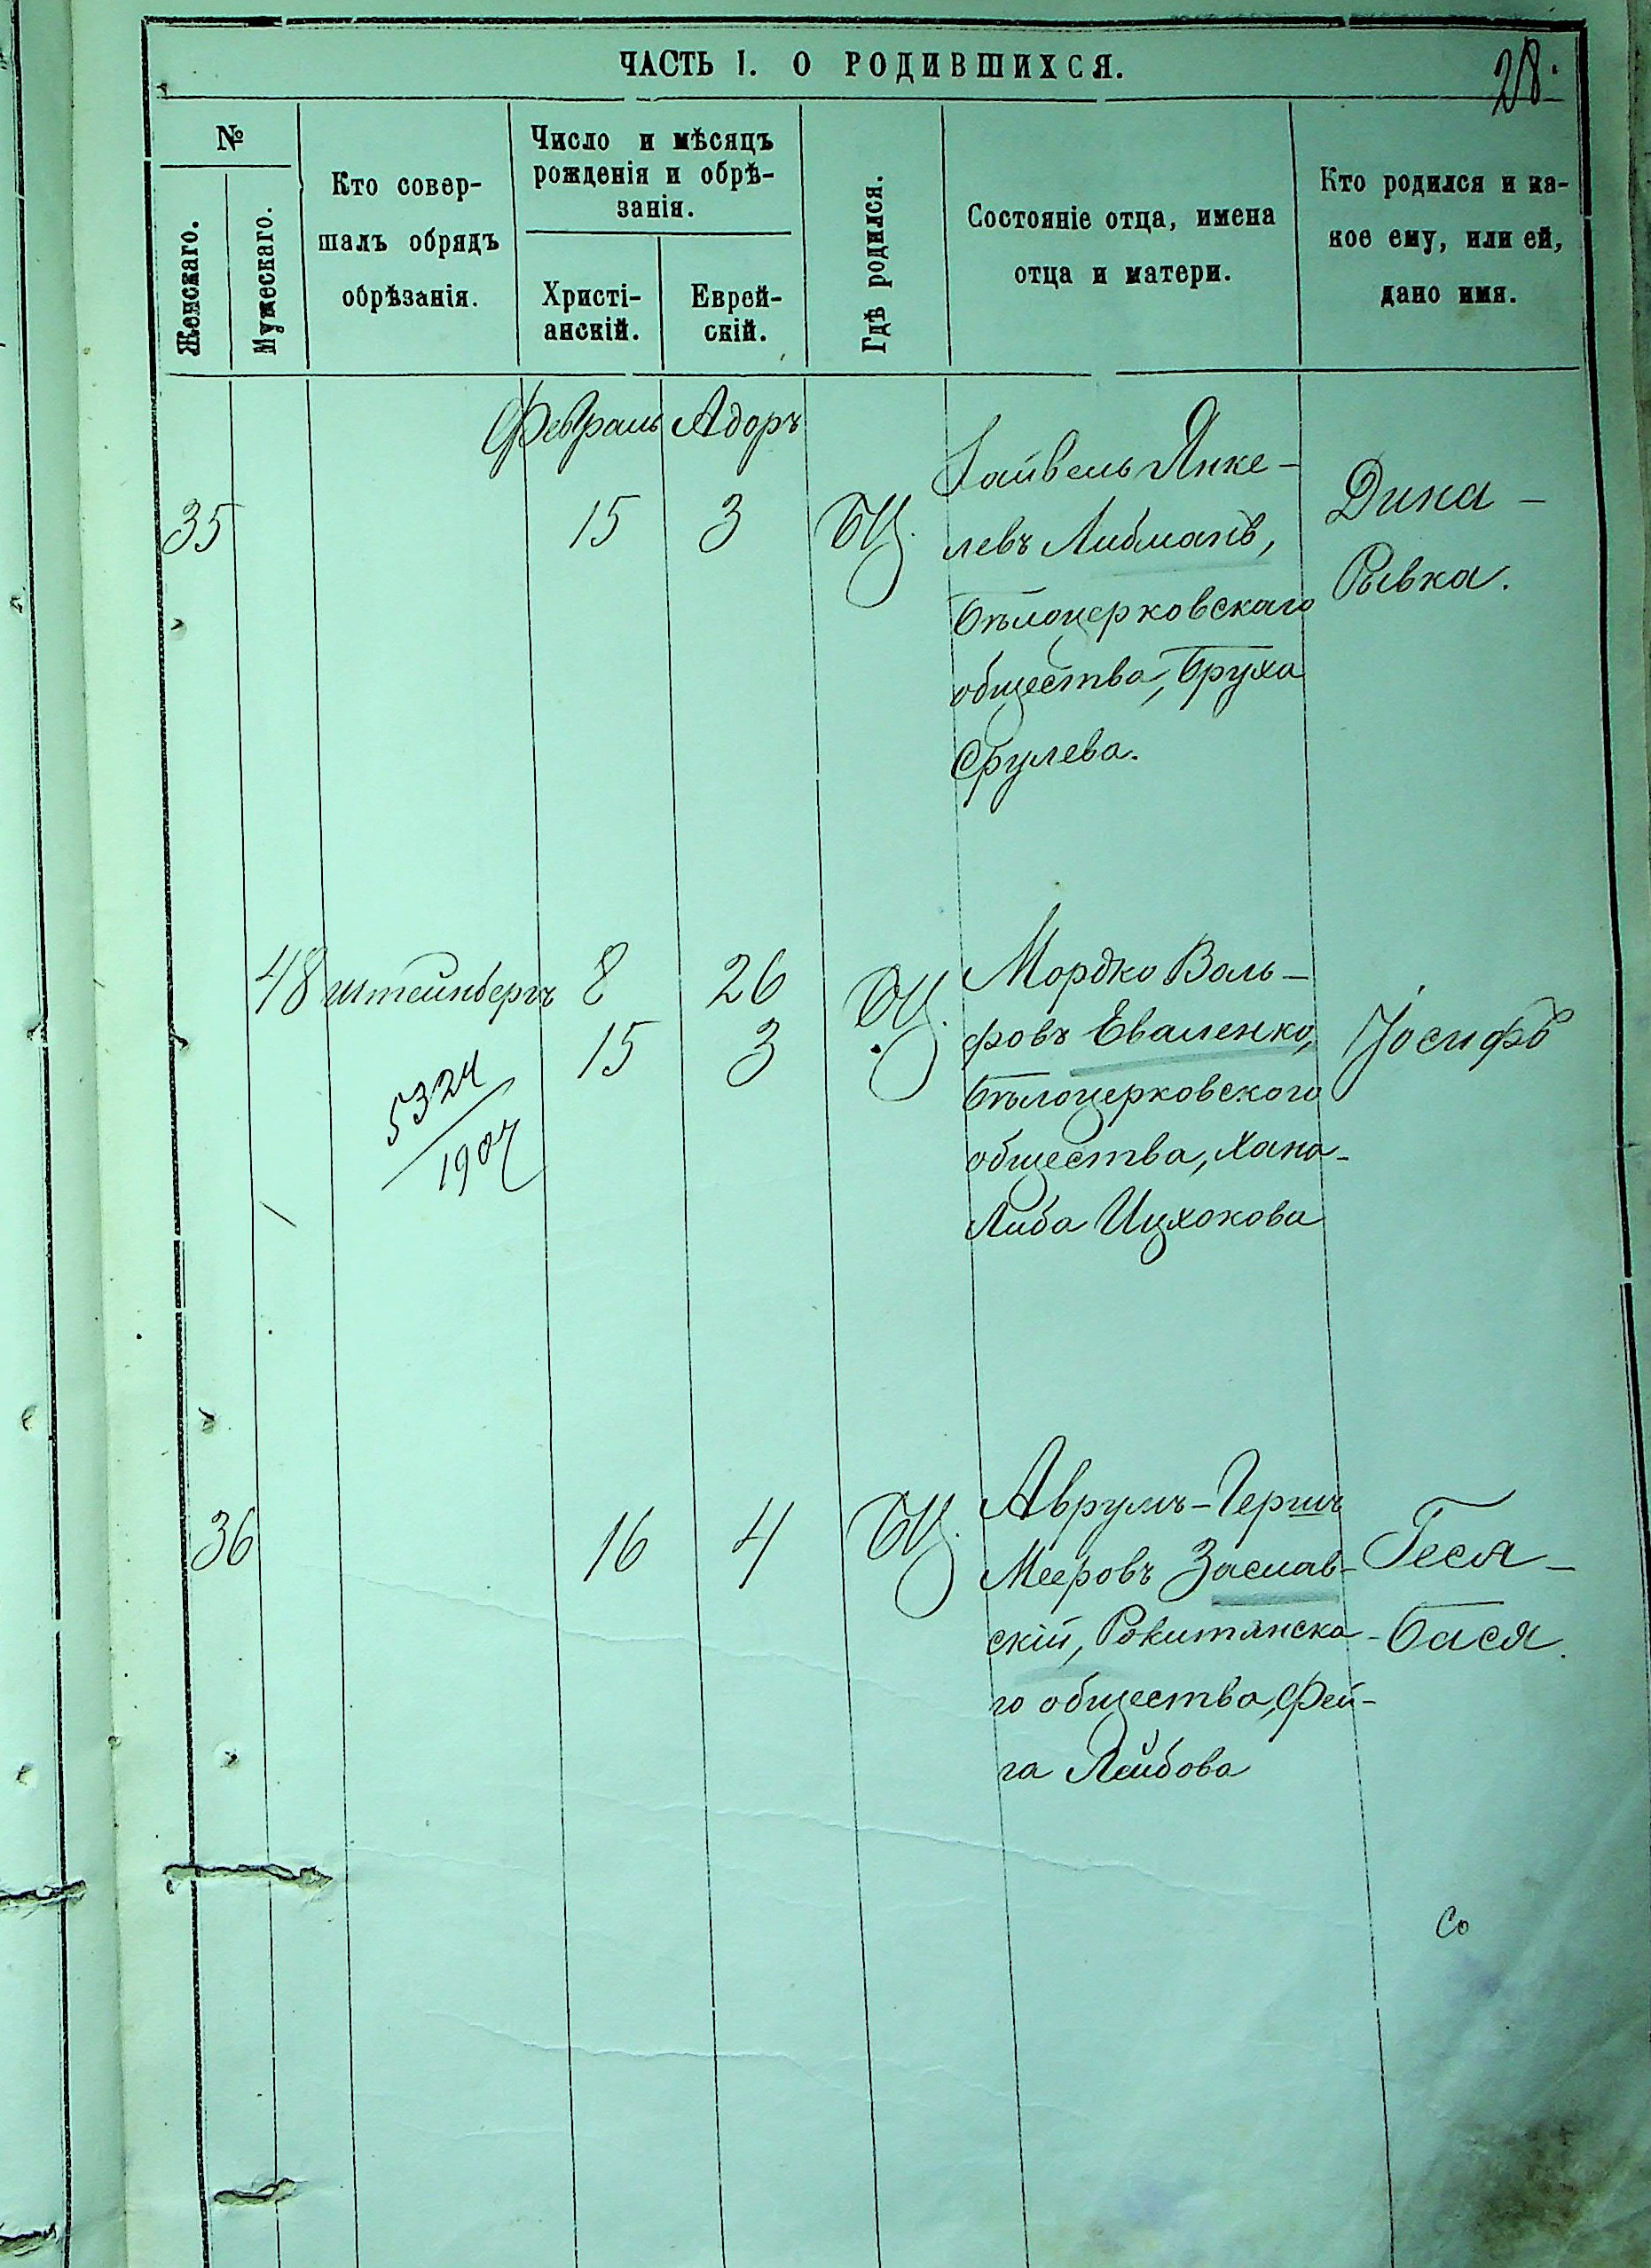 ЧАСТЬ I. О РОДИВШИХСЯ.
28.
№
Женскаго.
Мужескаго.
Кто совер-
шалъ обрядъ
обрѣзанія.
Число и мѣсяцъ
рожденія и обрѣ-
занія.
Христі-
анскій.
Еврей-
скій.
Гдѣ родился.
Состояніе отца, имена
отца и матери.
Кто родился и ка-
кое ему, или ей,
дано имя.
Февраль Адоръ
35 15 3 БЦ.
Файвель Янке-
левъ Либманъ,
Бѣлоцерковскаго
общества, Бруха
Срулева.
Дина-
Рывка.
48 Штейнбергъ 8 26 БЦ.
15 3
5324
1907
Мордко Воль-
фовъ Еваленко,
Бѣлоцерковского
общества, Хана-
Либа Ицхокова
Іосифъ
36 16 4 БЦ.
Аврумъ-Гершъ
Мееровъ Заслав-
скій, Рокитянска-
го общества, Фей-
га Лейбова
Геся-
Бася.
Со